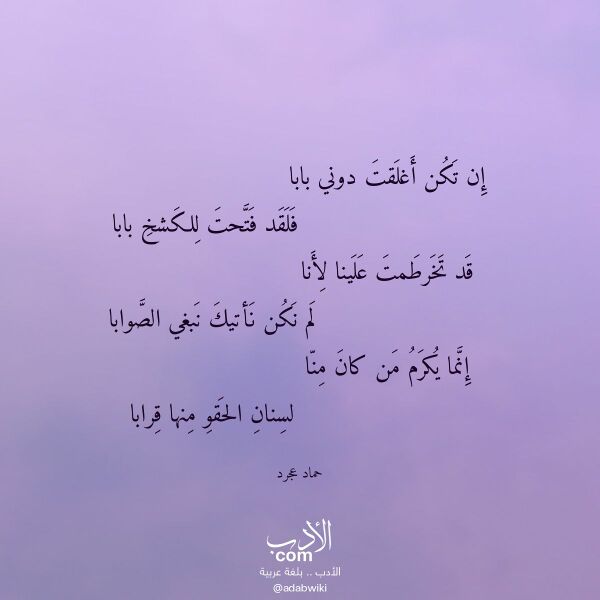 إِن تَكُن أَغلَقتَ دوني بابا
فَلَقَد فَتَّحتَ لِلكَشخِ بابا
قَد تَخَرطَمتَ عَلَينا لِأَنا
لَم نَكُن نَأتيكَ نَبغي الصَّوابا
إِنَّما يُكرَمُ مَن كانَ مِنّا
لسِنانِ الحَقوِ مِنها قِرابا
حماد عجرد
الأدب
com
الأدب .. بلغة عربية
@adabwiki